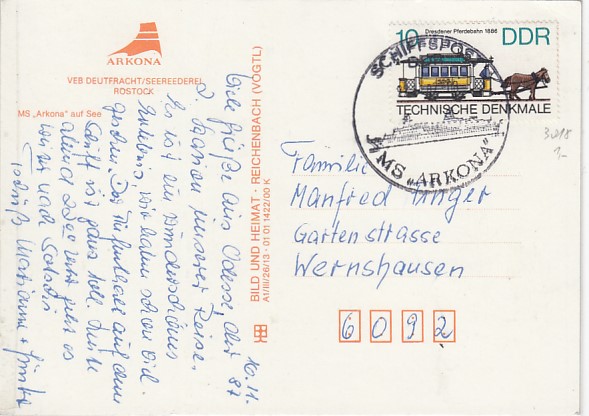 ARKONA
VEB DEUTFRACHT/SEEREEDEREI
ROSTOCK
MS „Arkona" auf See
10.11.
87
Viele Grüße aus Odessa, der
2. Station unserer Reise.
Es ist ein wunderschönes
Erlebnis, wir haben schon viel
gesehen. Das auf dem
Schiff ist ganz toll. Heute
Abend 22 00 geht es
weiter nach Sotschi
Marianne + Günter
BILD UND HEIMAT · REICHENBACH (VOGTL)
A1/III/26/13 · 01 01 1422/00 K
10 Dresdener Pferdebahn 1886 DDR
TECHNISCHE DENKMALE
SCHIFFSPOST
MS „ARKONA"
3018
1,-
Familie
Manfred Unger
Gartenstrasse
Wernshausen
6092